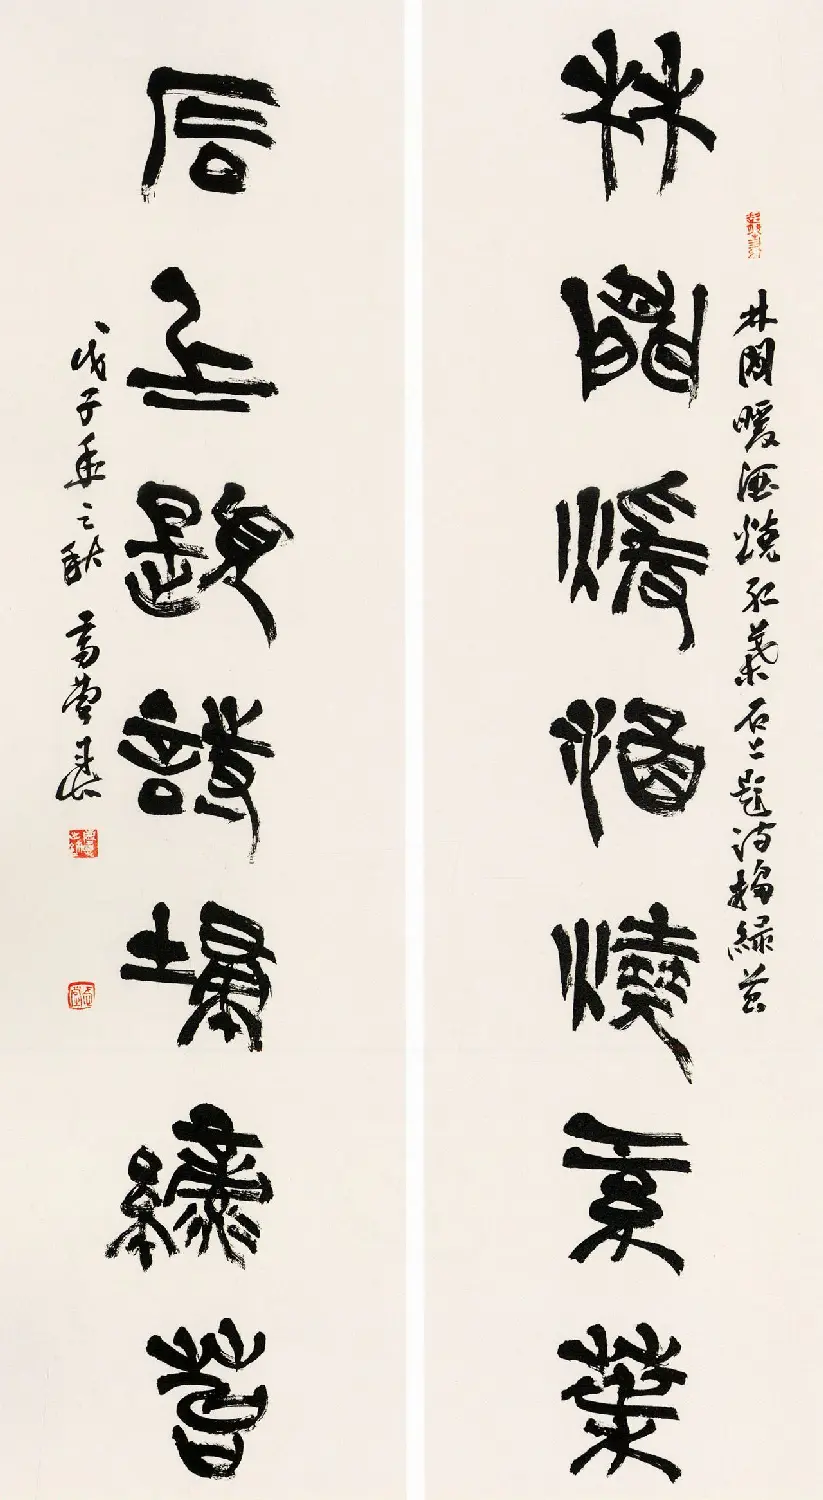 林間暖酒燒紅葉石上題詩掃綠苔
林間煖酒燒紅葉
石上題詩掃綠苔
戊子年之秋